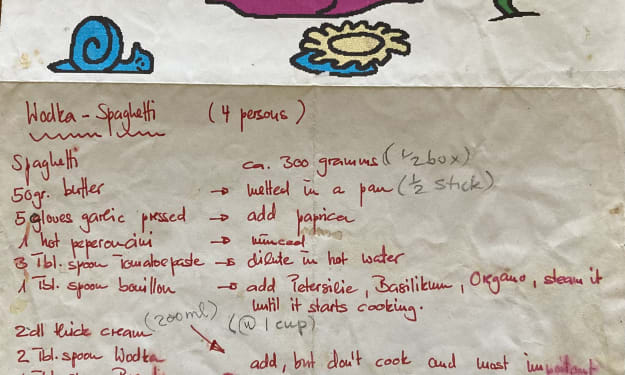 Wodka - Spaghetti (4 persons)
Spaghetti ca. 300 gramms (1/2 box)
50gr. butter → melted in a pan (1/2 stick)
5 gloves garlic pressed → add paprica
1 hot peperoncini → minced
3 Tbl. spoon Tomatoepaste → dilute in hot water
1 Tbl. spoon bouillon → add Petersilie, Basilikum, Oregano, steam it
until it starts cooking.
2dl thick cream (200ml) (@ 1 cup)
2 Tbl. spoon Wodka add, but don't cook and most important